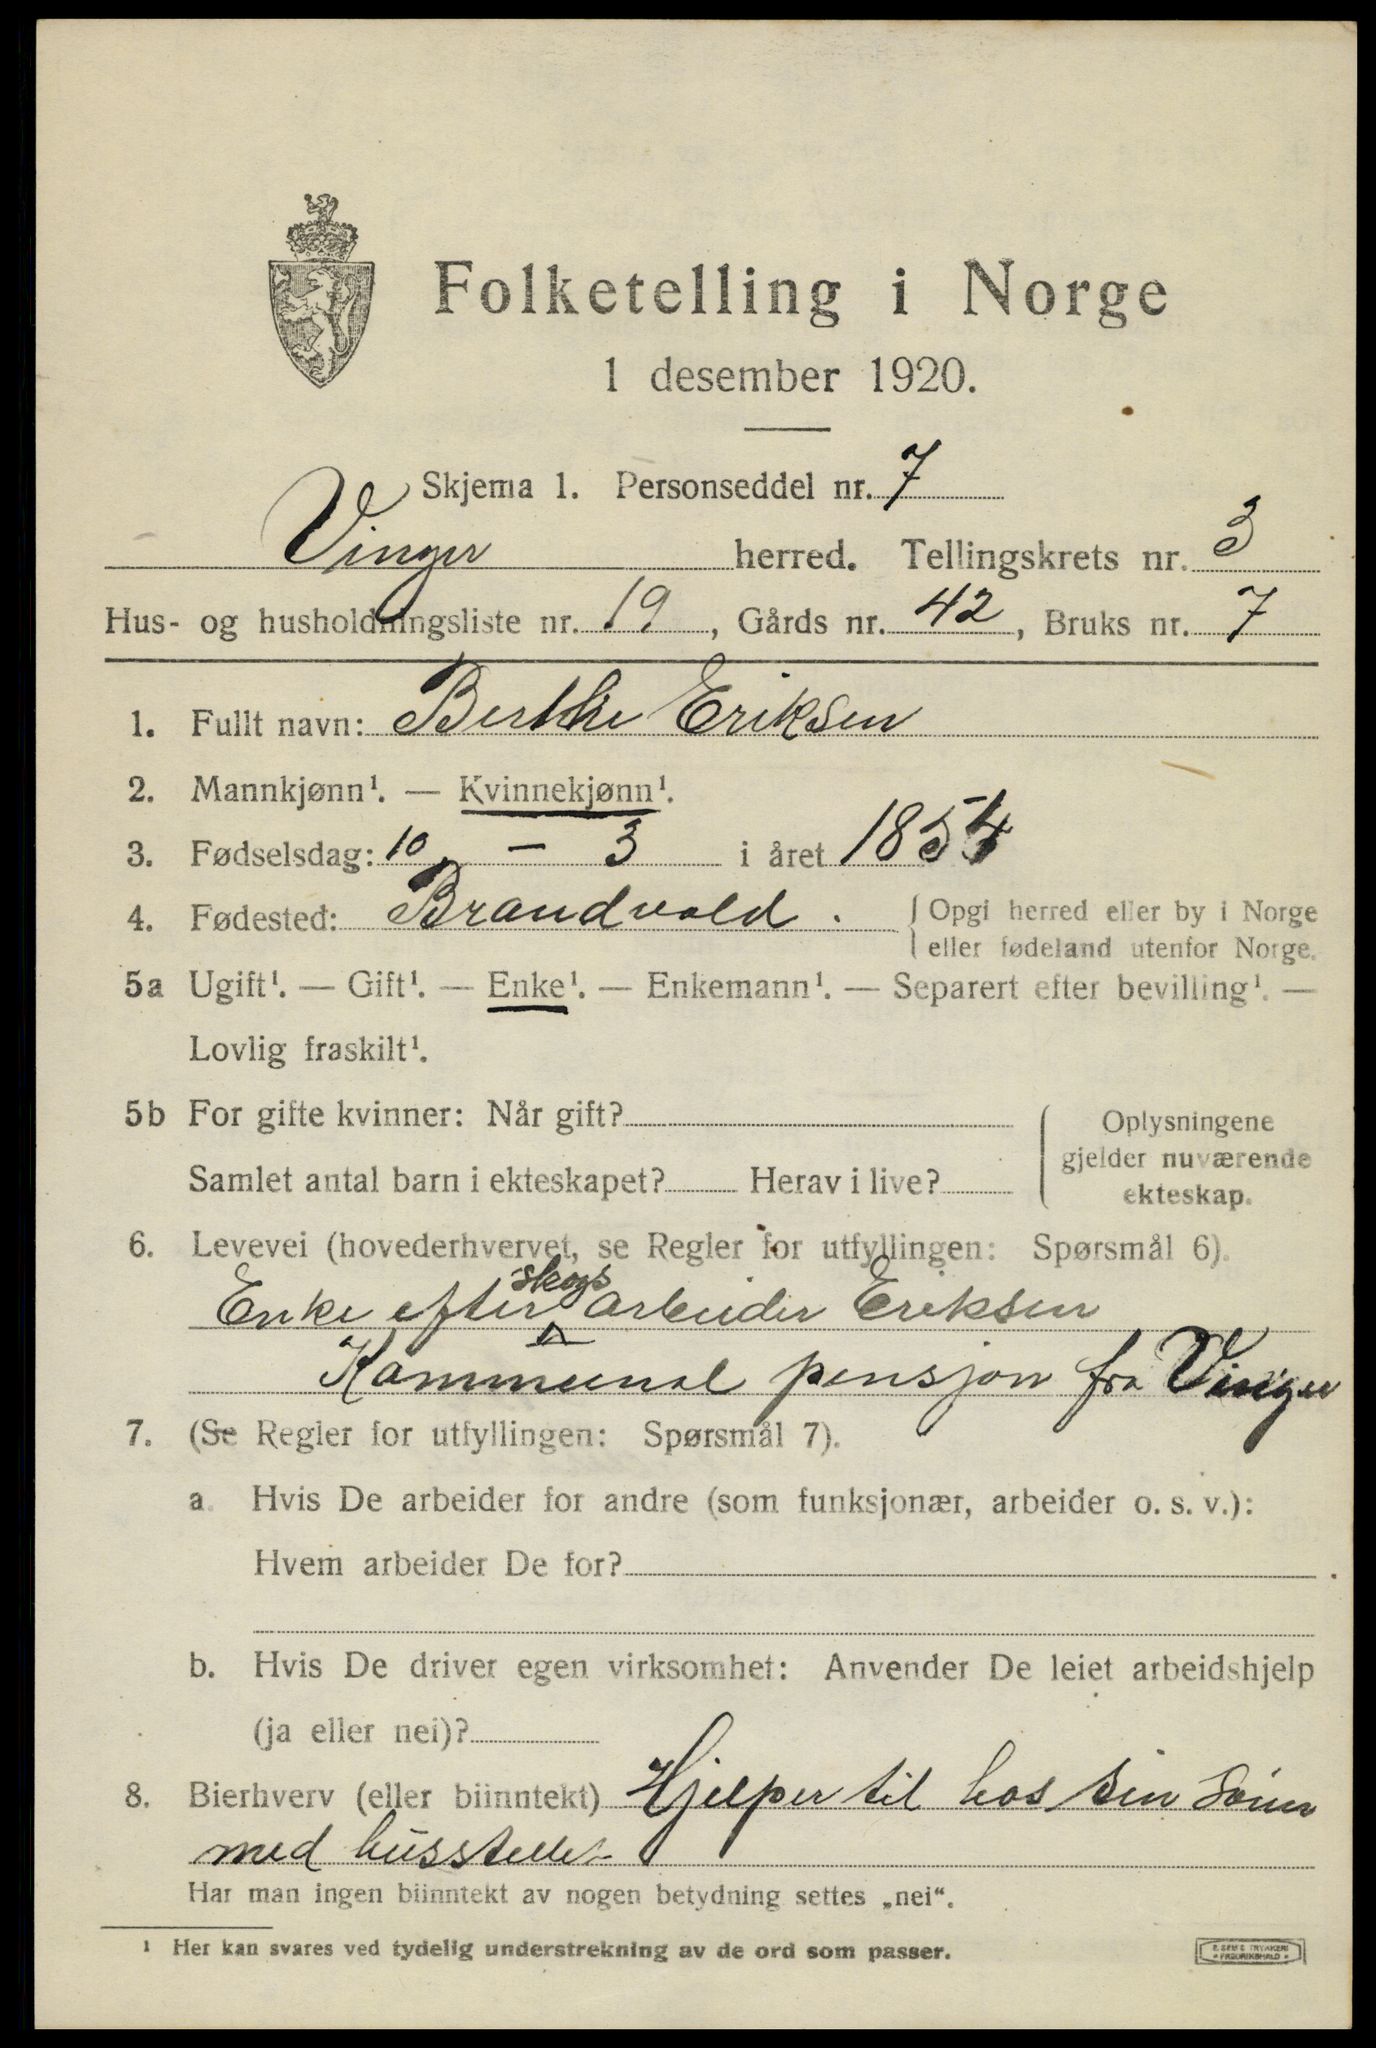 Folketelling i Norge
1 desember 1920.
Skjema 1. Personseddel nr. 7
Vinger herred. Tellingskrets nr. 3
Hus- og husholdningsliste nr. 19, Gårds nr. 42, Bruks nr. 7
1. Fullt navn: Berthe Eriksen
2. Mannkjønn¹. — Kvinnekjønn¹.
3. Fødselsdag: 10. – 3 i året 1854
4. Fødested: Brandvold. { Opgi herred eller by i Norge
eller fødeland utenfor Norge.
5a Ugift¹. — Gift¹. — Enke¹. — Enkemann¹. — Separert efter bevilling¹. —
Lovlig fraskilt¹.
5b For gifte kvinner: Når gift?
Samlet antal barn i ekteskapet? Herav i live?
Oplysningene
gjelder nuværende
ekteskap.
6. Levevei (hovederhvervet, se Regler for utfyllingen: Spørsmål 6).
Enke efter skogsarbeider Eriksen
Kommunal pensjon fra Vinger
7. (Se Regler for utfyllingen: Spørsmål 7).
a. Hvis De arbeider for andre (som funksjonær, arbeider o. s. v.):
Hvem arbeider De for?
b. Hvis De driver egen virksomhet: Anvender De leiet arbeidshjelp
(ja eller nei)?
8. Bierhverv (eller biinntekt) Hjelper til hos sin sønn
med husstellet
Har man ingen biinntekt av nogen betydning settes „nei“.
¹ Her kan svares ved tydelig understrekning av de ord som passer.
E. SEM'S TRYKKERI
FREDRIKSHALD